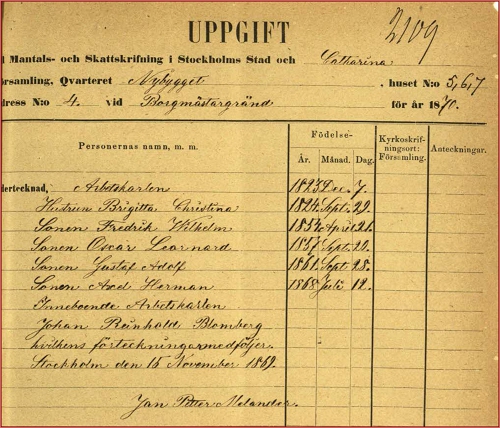 UPPGIFT 2109
l Mantals- och Skattskrifning i Stockholms Stad och Catharina
örsamling, Qvarteret Nybygget, huset N:o 5,6,7
dress N:o 4. vid Borgmästargränd för år 1870.
Personernas namn, m. m. Födelse- År. Månad. Dag. Kyrkoskrifningsort: Församling. Anteckningar.
dertecknad, Arbetskarlen 1823 Dec. 7.
Hustrun Brigitta Christina 1824 Sept. 29.
Sonen Fredrik Wilhelm 1854 April 21.
Sonen Oscar Leonnard 1857 Sept. 20.
Sonen Gustaf Adolf 1861. Sept 28.
Sonen Axel Herman 1868 Juli 12.
Inneboende Arbetskarlen
Johan Reinhold Blomberg
hvilkens förteckningar medföljer.
Stockholm den 15 November 1869.
Jan Petter Melander.